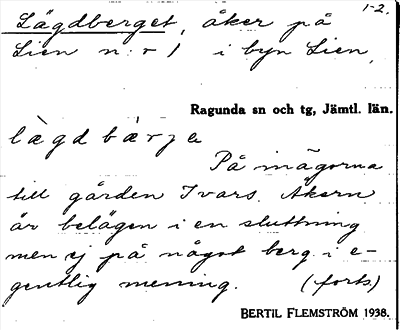 1-2.
Lägdberget, åker på
Lien n:r 1 i byn Lien,
Ragunda sn och tg, Jämtl. län.
lὰgdbærja
På inägorna
till gården Ivars. Åkern
är belägen i en sluttning
men ej på något berg i e-
gentlig mening. (forts)
BERTIL FLEMSTRÖM 1938.